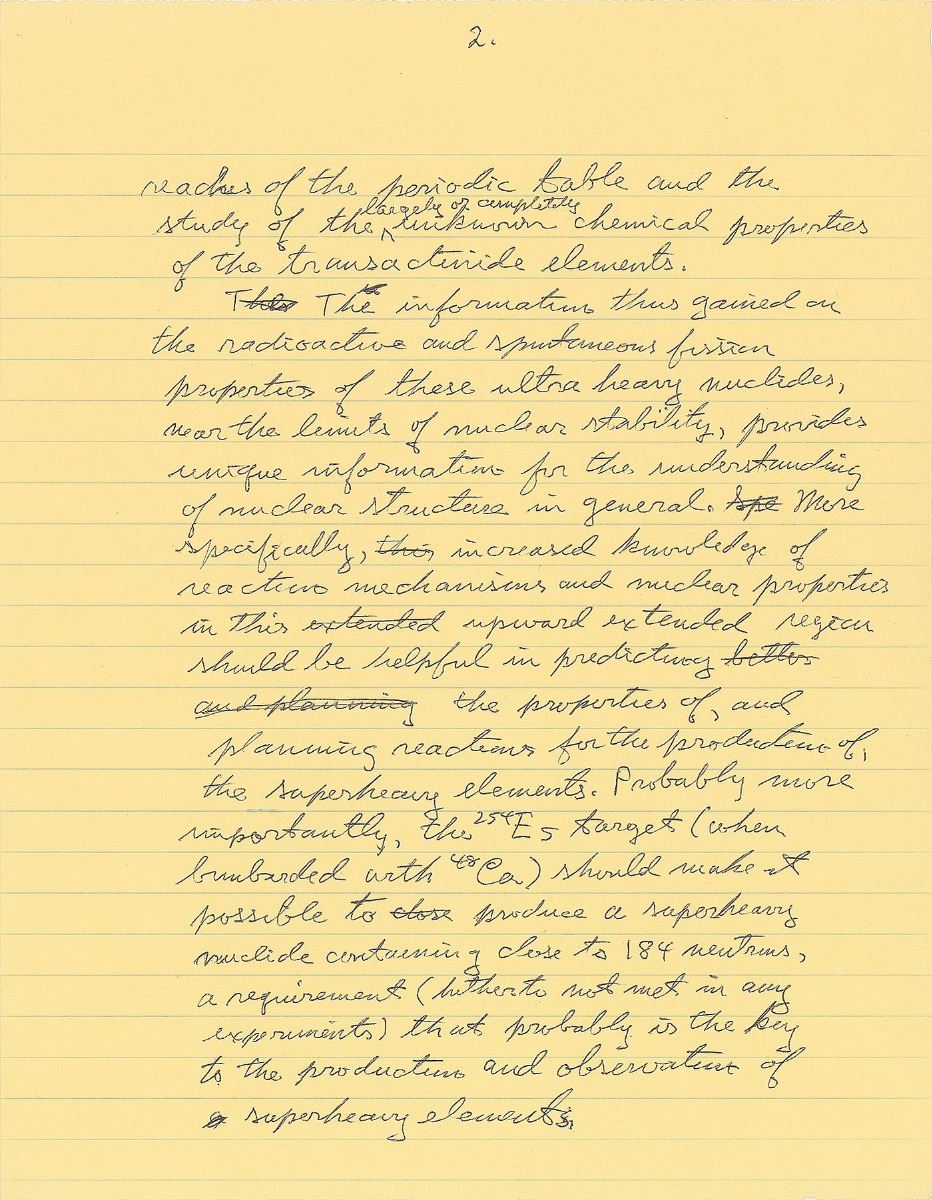 2.
reaches of the periodic table and the
largely or completely
study of the unknown chemical properties
of the transactinide elements.
The information thus gained on
the radioactive and spontaneous fission
properties of these ultra heavy nuclides,
near the limits of nuclear stability, provides
unique information for the understanding
of nuclear structure in general. Spe More
specifically, this increased knowledge of
reaction mechanisms and nuclear properties
in this extended upward extended region
should be helpful in predicting better
and planning the properties of, and
planning reactions for the production of,
the superheavy elements. Probably more
importantly, the ²⁵⁴Es target (when
bombarded with ⁴⁸Ca) should make it
possible to close produce a superheavy
nuclide containing close to 184 neutrons,
a requirement (hitherto not met in any
experiments) that probably is the key
to the production and observation of
a superheavy elements.